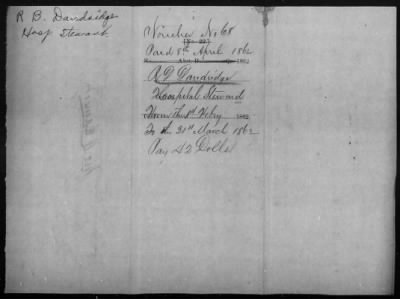 R. B. Dandridge
Hosp Steward
Voucher No 68
(No. 22.)
Paid 8th April 1862
R B Dandridge
Hospital Steward
From the 1st Feby 1862
To the 31st March 1862
Pay 42 Dolls